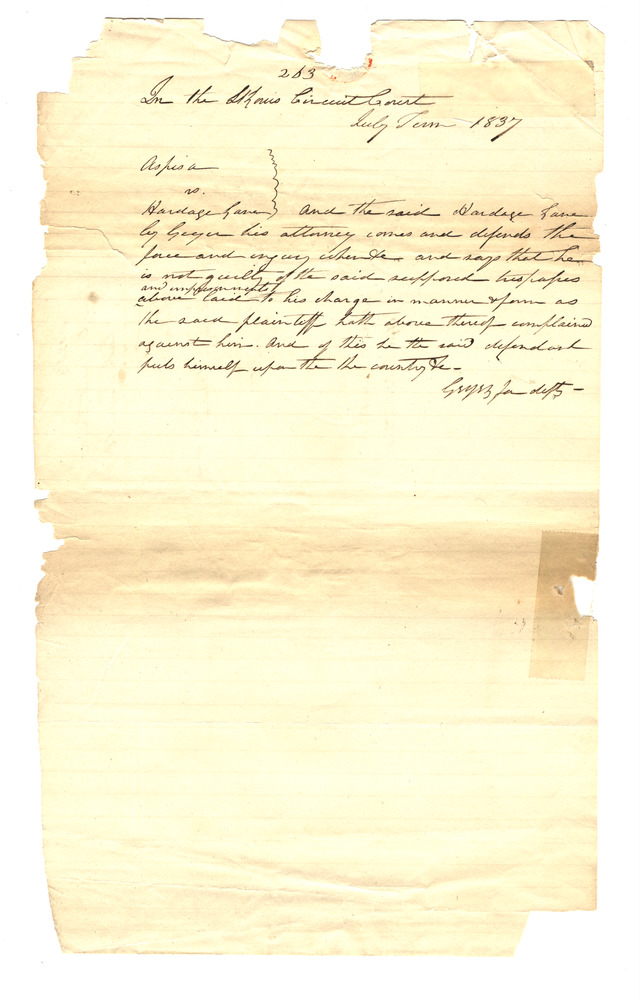 263
In the St Louis Circuit Court
July Term 1837
Aspisa
vs.
Hardage Lane } And the said Hardage Lane
by Geyer his attorney comes and defends the
force and injury when &c and says that he
is not guilty of the said supposed trespasses
and imprisonments
above laid to his charge in manner & form as
the said plaintiff hath above thereof complained
against him. And of this he the said defendant
puts himself upon the the country &c -
Geyer for deft -